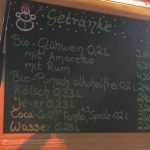 Getränke
Bio-Glühwein 0,2L
mit Amaretto
mit Rum
Bio-Punsch alkoholfrei 0,2
Kölsch 0,33L
Jever 0,33L
Coca-Cola, Fanta, Sprite 0,2
Wasser 0,25L